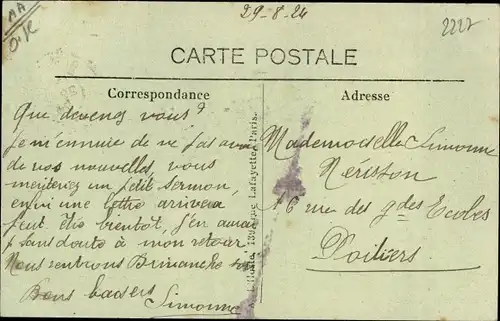 AA
29-8-24
2227
CARTE POSTALE
Correspondance
Que devenez vous?
je m'ennuie de ne pas avoir
de nos nouvelles, vous
meriteriez un petit sermon,
enfin une lettre arrivera
peut etre bientot, j'en aurai
sans doute à mon retour
Nous rentrons Dimanche soir
Bons baisers
Simonne
139 rue Lafayette, Paris.
Adresse
Mademoiselle Simonne
Nérisson
16 rue des gdes Ecoles
Poitiers